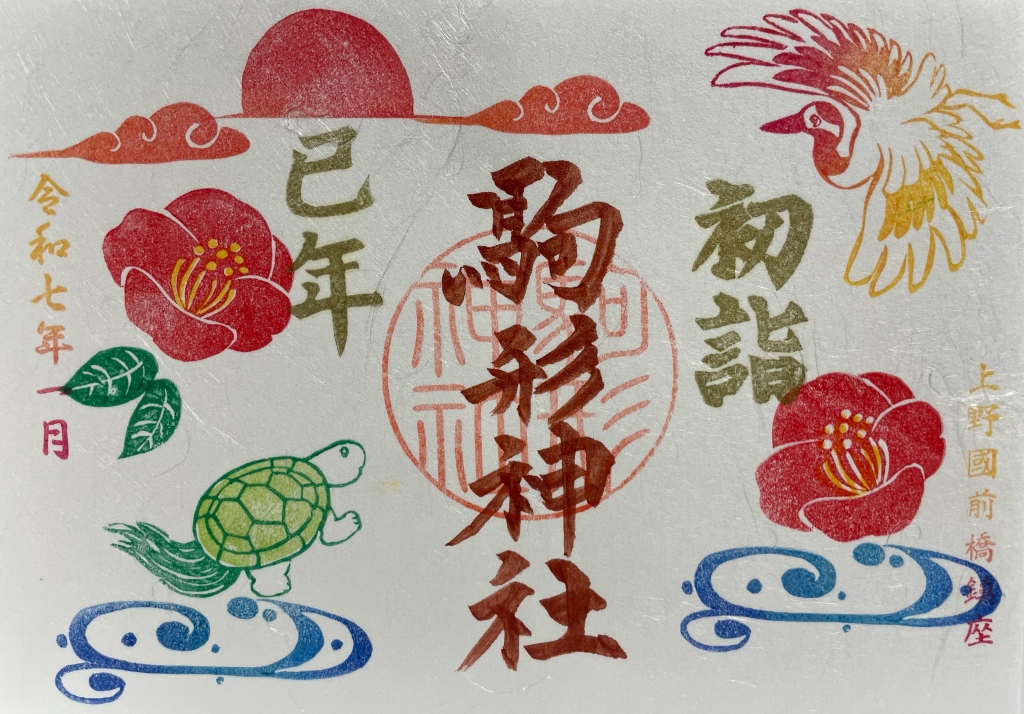 上野國前橋鎮座
初詣
駒形神社
駒形神社
巳年
令和七年一月